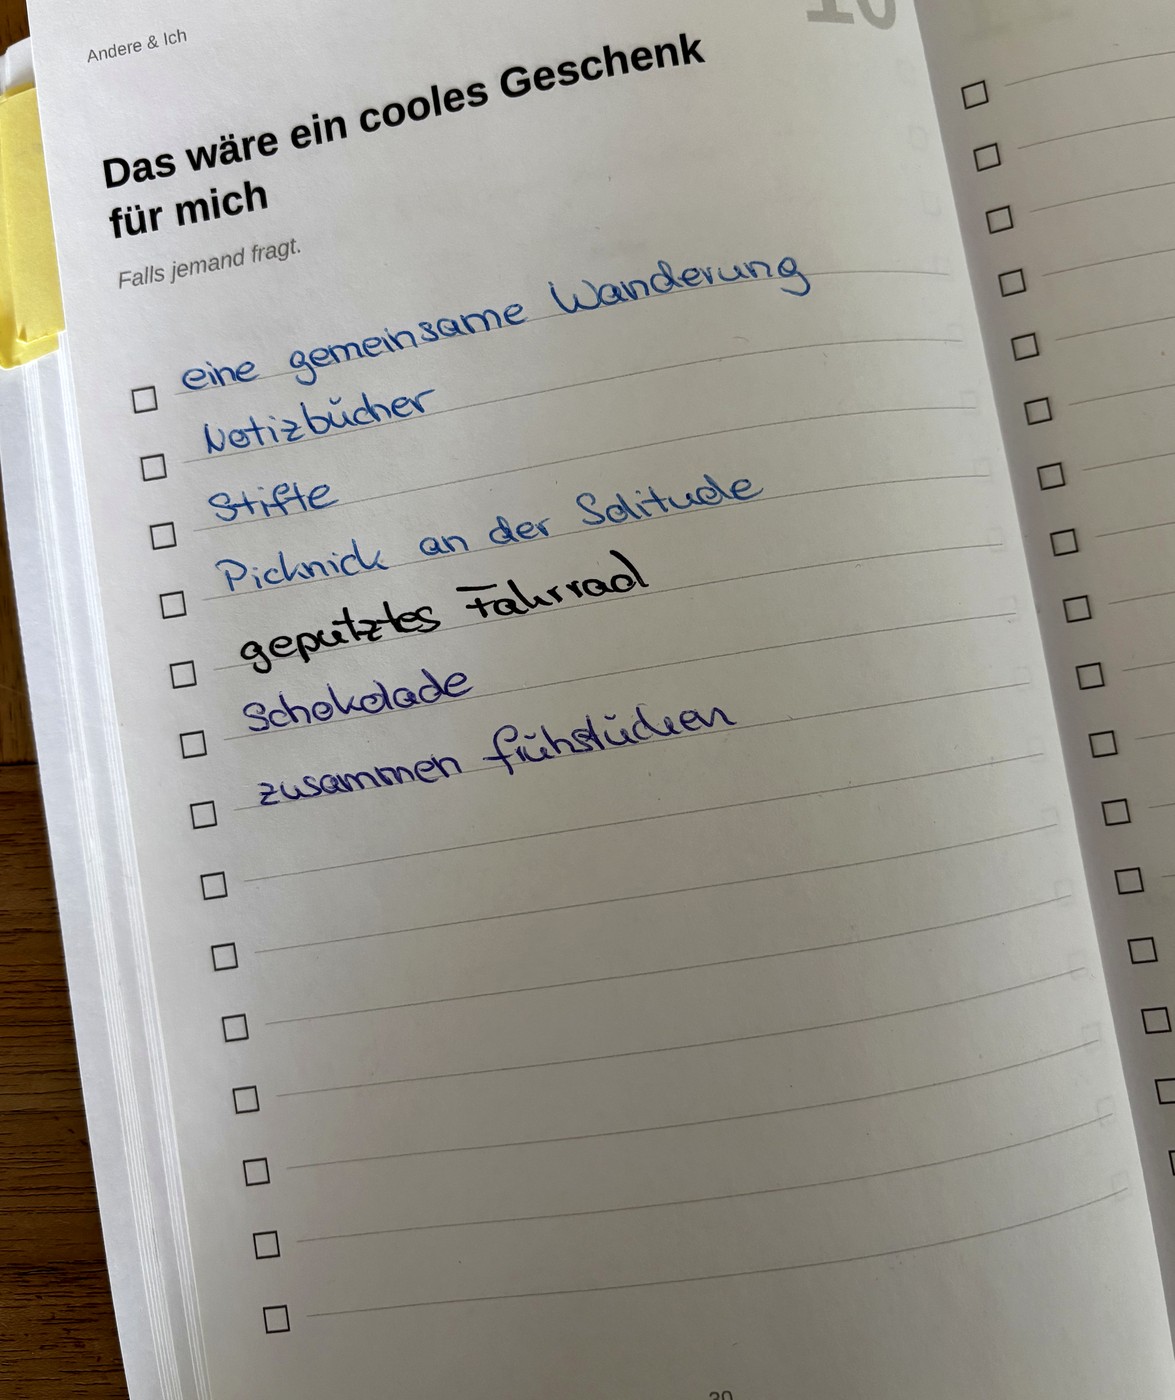 Andere & Ich
10
Das wäre ein cooles Geschenk
für mich
Falls jemand fragt.
eine gemeinsame Wanderung
Notizbücher
Stifte
Picknick an der Solitude
geputztes Fahrrad
Schokolade
zusammen frühstücken